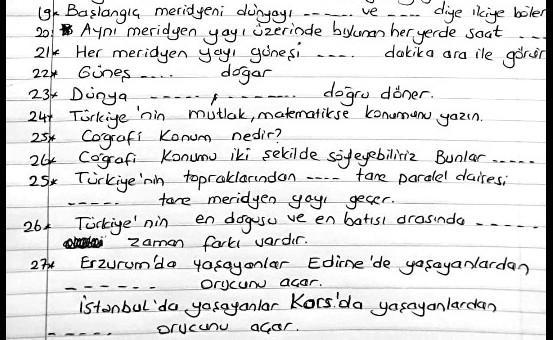 19* Başlangıç meridyeni dünyayı ------ ve ---- diye ikiye böler
20* Aynı meridyen yayı üzerinde bulunan her yerde saat ----
21* Her meridyen yayı güneşi ---- dakika ara ile görür
22* Güneş ---- doğar
23* Dünya ------, ------ doğru döner.
24* Türkiye'nin mutlak, matematikse konumunu yazın.
25* Coğrafi Konum nedir?
26* Coğrafi Konumu iki şekilde söyleyebiliriz Bunlar -----
25* Türkiye'nin topraklarından ---- tane paralel dairesi
----- tane meridyen yayı geçer.
26* Türkiye'nin en doğusu ve en batısı arasında -----
zaman farkı vardır.
27* Erzurum'da yaşayanlar Edirne'de yaşayanlardan
------ orucunu açar.
İstanbul'da yaşayanlar Kars'da yaşayanlardan
----- orucunu açar.